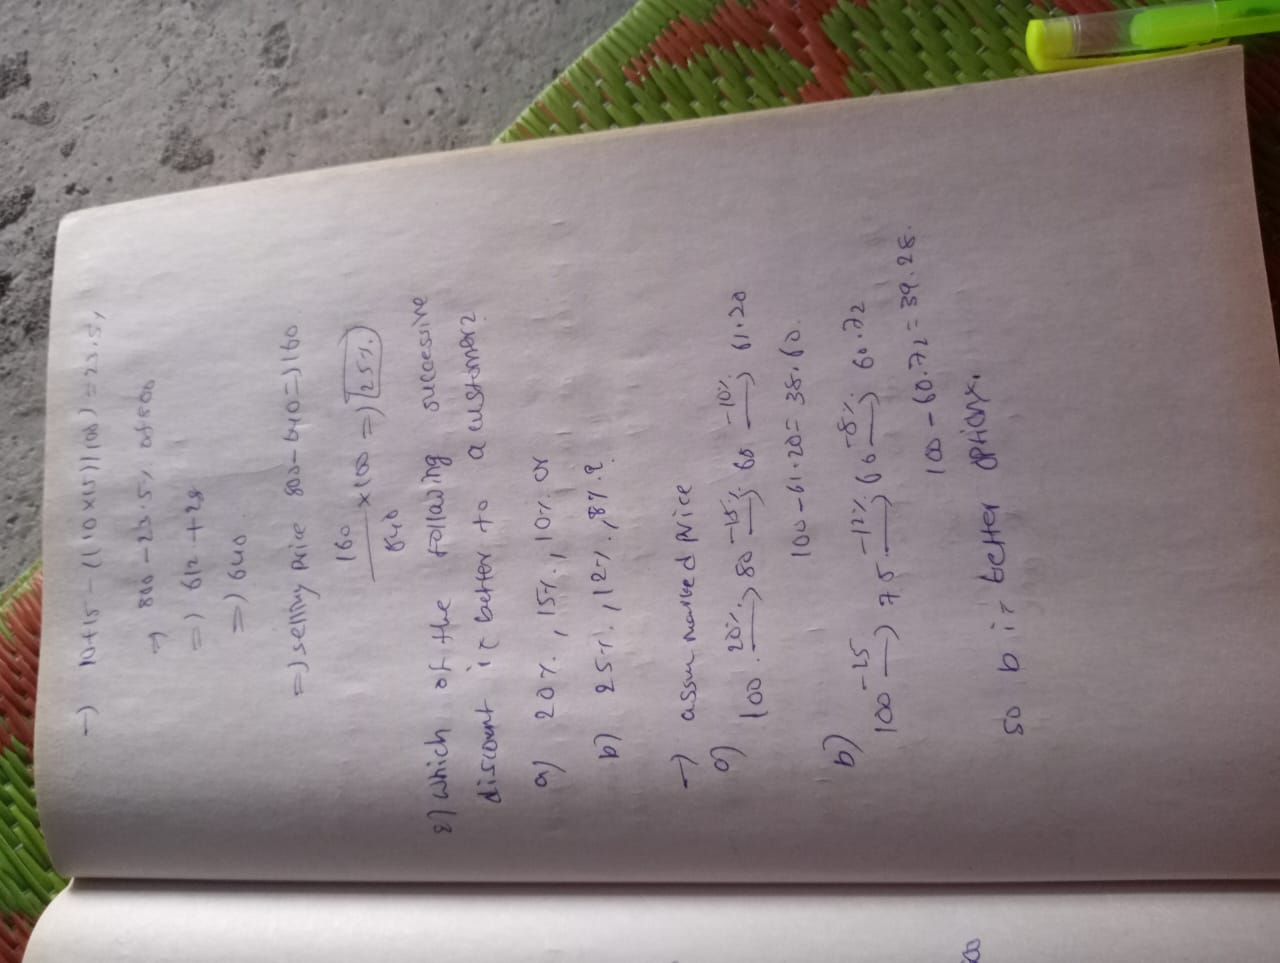 →) 10+15 - ((10×15)/100) = 23.5%
→ 800 - 23.5% of 800
=) 612 + 28
=) 640
=) selling price 800-640 =) 160
160/640 ×100 =) 25%.
8) Which of the following successive
discount is better to a customer?
a) 20%, 15%, 10% or
b) 25%, 12%, 8%?
→) assum marked price
a)
100 20% → 80 -15% → 68 -10% → 61.20
100-61.20 = 38.60.
b)
100 -25 → 75 -12% → 66 -8% → 60.72
100-60.72 = 39.28.
So b is better option.
800